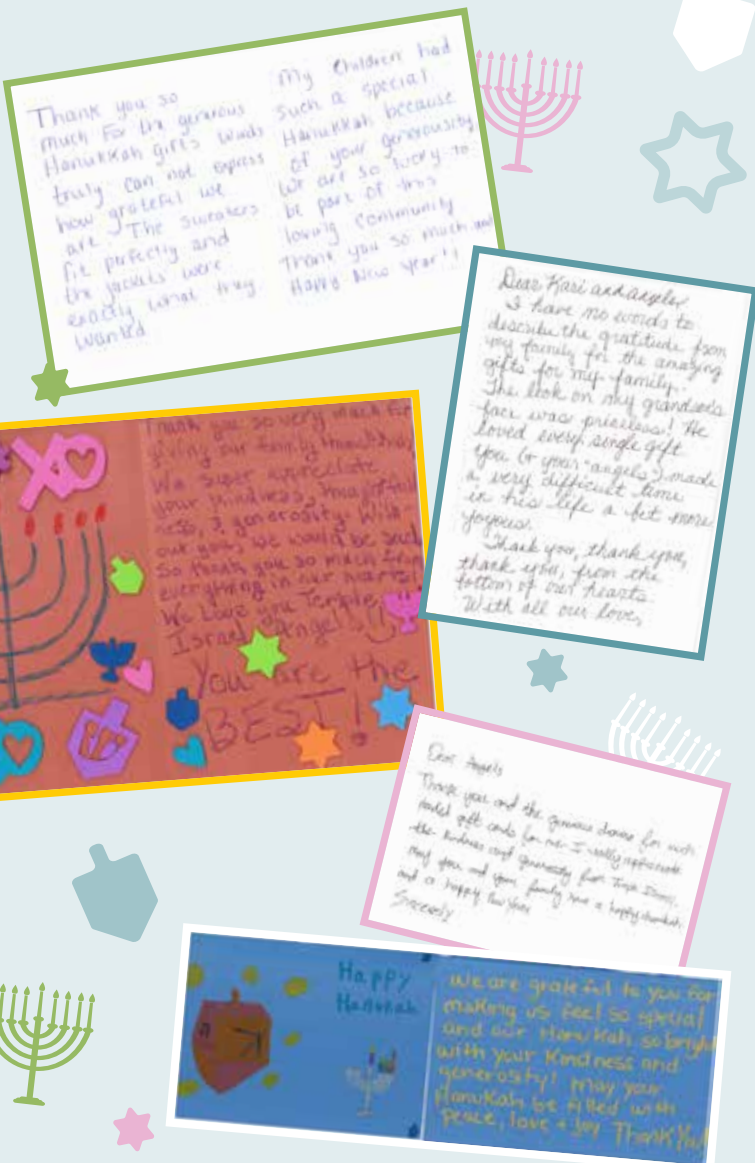 Thank you so
much for the generous
Hanukkah gifts words
truly can not express
how grateful we
are. The sweaters
fit perfectly and
the jackets were
exactly what they
wanted
My children had
such a special
Hanukkah because
of your generousity
We are so lucky to
be part of this
loving community
Thank you so much and
Happy New year!!
Dear Kari and angels,
I have no words to
describe the gratitude from
my family for the amazing
gifts for my family.
The look on my grandsons
face was priceless! He
loved every single gift
You (& your "angels") made
a very difficult time
in his life a bit more
joyous.
Thank you, thank you,
thank you, from the
bottom of our hearts.
With all our love,
XO
Thank you so very much for
giving our family Hanukkah
We super appreciate
your kindness, thoughtful
ness, & generosity. With
out you, we would be sad
So thank you so much from
everything in our hearts!
We Love you Temple
Israel Angel!
You are the
BEST!
Dear Angels
Thank you and the generous donor for such
needed gift cards for me. I really appreciate
the kindness and generosity from
may you and your family have a happy
and a happy New Year
Sincerely
Happy
Hanukah
We are grateful to you for
making us feel so special
and our Hanukah so bright
with your Kindness and
generosity! May your
Hanukah be filled with
Peace, love & Joy Thank You!